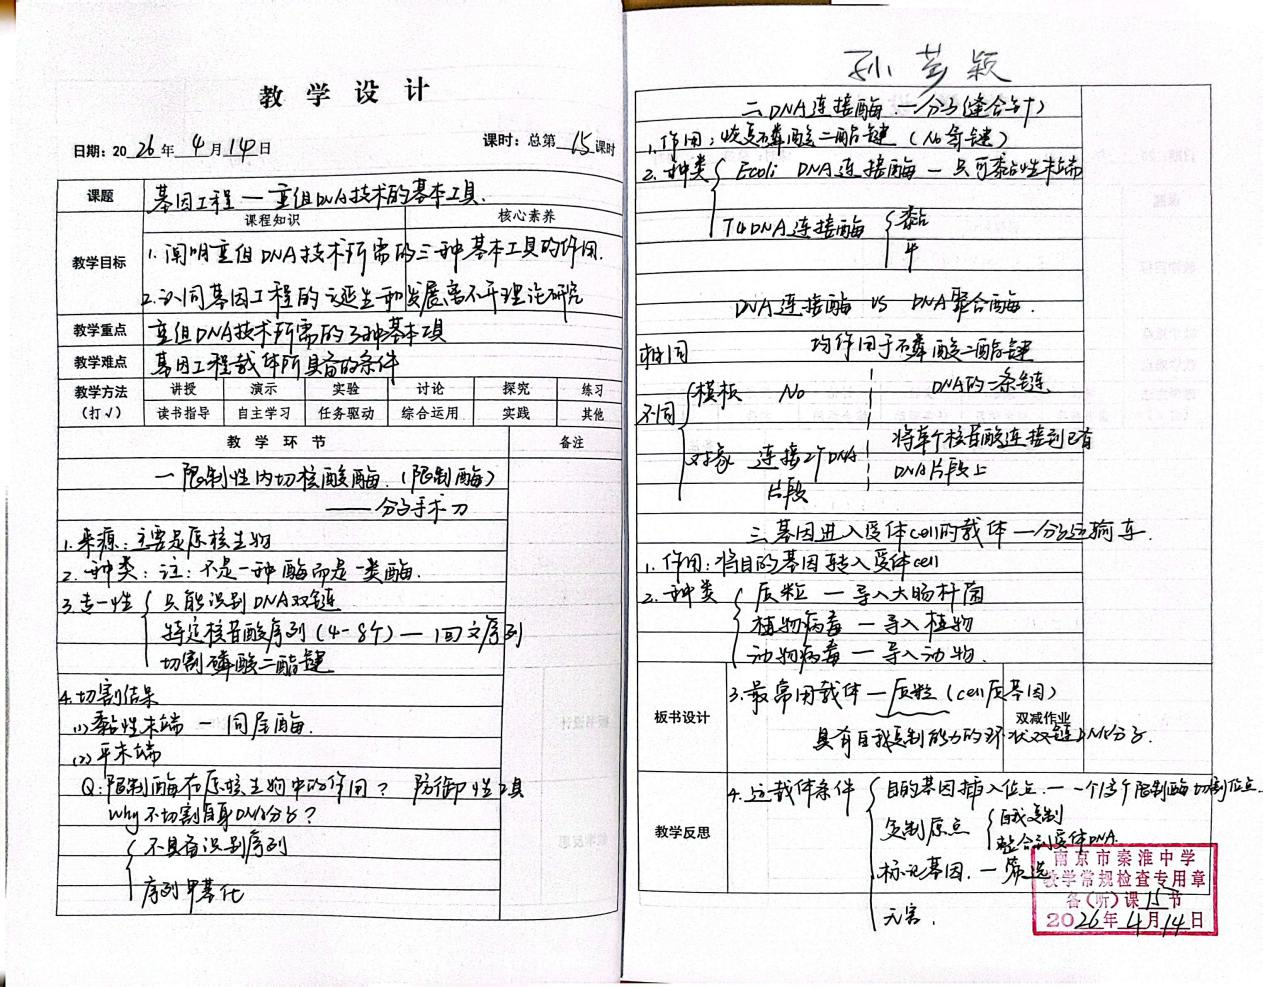 教学设计
日期: 2026年4月14日
课时: 总第15课时
课题 基因工程 — 重组DNA技术的基本工具.
教学目标 课程知识 核心素养
1. 阐明重组DNA技术所需的三种基本工具的作用.
2. 认同基因工程的诞生和发展离不开理论研究
教学重点 重组DNA技术所需的3种基本工具
教学难点 基因工程载体所具备的条件
教学方法（打√） 讲授 演示 实验 讨论 探究 练习
读书指导 自主学习 任务驱动 综合运用 实践 其他
教学环节 备注
一 限制性内切核酸酶.（限制酶）
—— 分子手术刀
1. 来源: 主要是原核生物
2. 种类: 注: 不是一种酶而是一类酶.
3. 专一性 只能识别DNA双链
特定核苷酸序列 (4-8个) — 回文序列
切割磷酸二酯键
4. 切割结果
(1) 黏性末端 — 同尾酶.
(2) 平末端
Q: 限制酶在原核生物中的作用? 防御性工具
Why 不切割自身DNA分子?
不具备识别序列
序列甲基化
孙芸颖
二 DNA连接酶. — 分子(缝合针)
1. 作用: 恢复磷酸二酯键 (No氢键)
2. 种类 Ecoli DNA连接酶 — 只可黏性末端
T4DNA连接酶 黏
平
DNA连接酶 VS DNA聚合酶.
相同 均作用于磷酸二酯键
不同 模板 No DNA的一条链
对象 连接2个DNA片段 将单个核苷酸连接到已有DNA片段上
三 基因进入受体cell的载体 — 分子运输车.
1. 作用: 将目的基因转入受体cell
2. 种类 质粒 — 导入大肠杆菌
植物病毒 — 导入植物
动物病毒 — 导入动物.
板书设计 3. 最常用载体 — 质粒 (cell质基因)
双减作业
具有自我复制能力的环状双链DNA分子.
教学反思 4. 运载体条件 目的基因插入位点. — 一个/多个限制酶切割位点.
复制原点 自我复制
整合到受体DNA.
标记基因. — 筛选
无害.
南京市秦淮中学
教学常规检查专用章
备(听)课15节
2026年4月14日